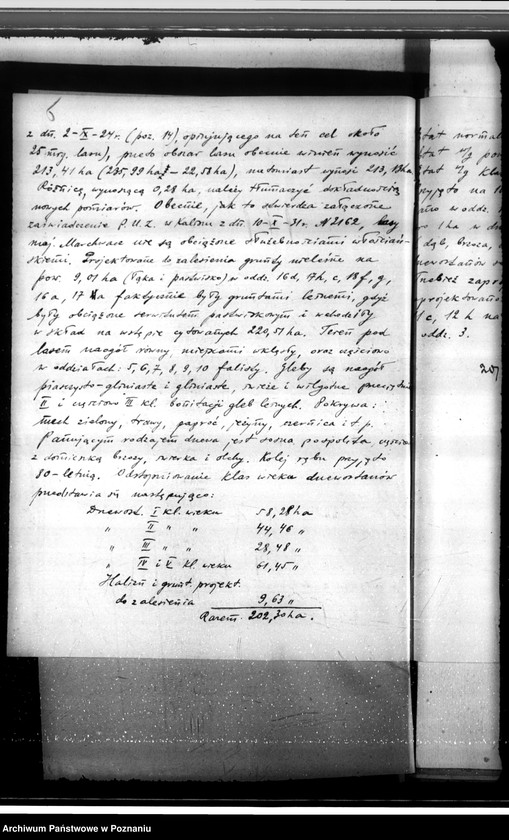 5
z dn. 2-IX-24 r. (poz. 14), opiewającego na ten cel około
25 mrg. lasu), przeto obszar lasu obecnie winien wynosić
213,41 ha (235,99 ha – 22,58 ha), natomiast wynosi 213,13 ha
Różnicę, wynoszącą 0,28 ha, należy tłumaczyć dokładnością
nowych pomiarów. Obecnie, jak to stwierdza załączone
zaświadczenie P.U.Z. w Kaliszu z dn. 10-X-31 r. N 2162, lasy
maj. Marchwacz nie są obciążone służebnościami włościań-
skiemi. Projektowane do zalesienia grunty nieleśne na
pow. 9,01 ha (łąka i pastwisko) w oddz. 16d, 17h, c, 18f, g,
16a, 17 faktycznie były gruntami leśnemi, gdyż
były obciążone serwitutem pastwiskowym i wchodziły
w skład na wstępie cytowanych 220,51 ha. Teren pod
lasem naogół równy, miejscami wklęsły, oraz częściowo
w oddziałach: 5, 6, 7, 8, 9, 10 falisty. Gleby są naogół
piaszczysto-gliniaste i gliniaste, świeże i wilgotne przeważnie
II i częściowo III kl. bonitacji gleb leśnych. Pokrywa:
mech zielony, trawy, paproć, jeżyny, czernica i t p.
Panującym rodzajem drzewa jest sosna pospolita,
z domieszką brzozy, świerka i olchy. Kolej rębu przyjęto
80-letnią. Odstopniowanie klas wieku drzewostanów
przedstawia się następująco:
Drzewost. I kl. wieku 58,28 ha
" II " " 44,46 "
" III " " 28,48 "
" IV i V kl. wieku 61,45 "
Halizn i grunt. projekt.
do zalesienia 9,63 "
Razem 202,30 ha.
etat normal
etat
etat
przyjęto na
w oddz.
1 ha w
dąb, brzoza,
projektowano
1 c, 12 h na
oddz. 3.
207
Archiwum Państwowe w Poznaniu